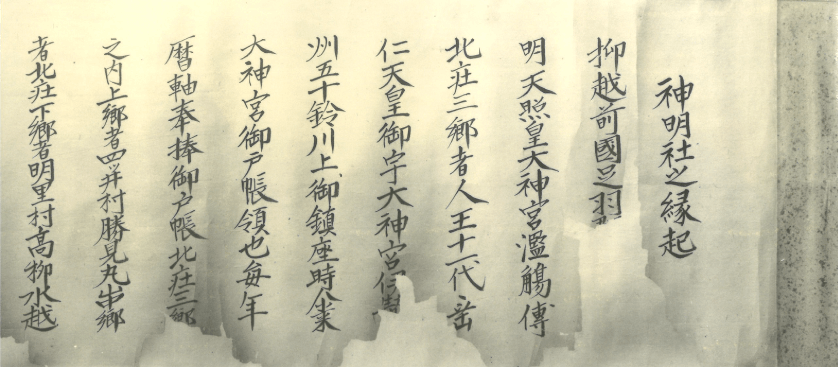 神明社之縁起
抑越前國足羽
明天照皇大神宮濫觴傳
北庄三郷者人王十一代垂
仁天皇御宇大神宮伊勢
州五十鈴川上御鎮座時分業
大神宮御戸帳領也毎年
暦軸奉捧御戸帳北庄三郷
之内上郷者四ツ井村勝見丸串郷
者北庄下郷者明里村高柳水越